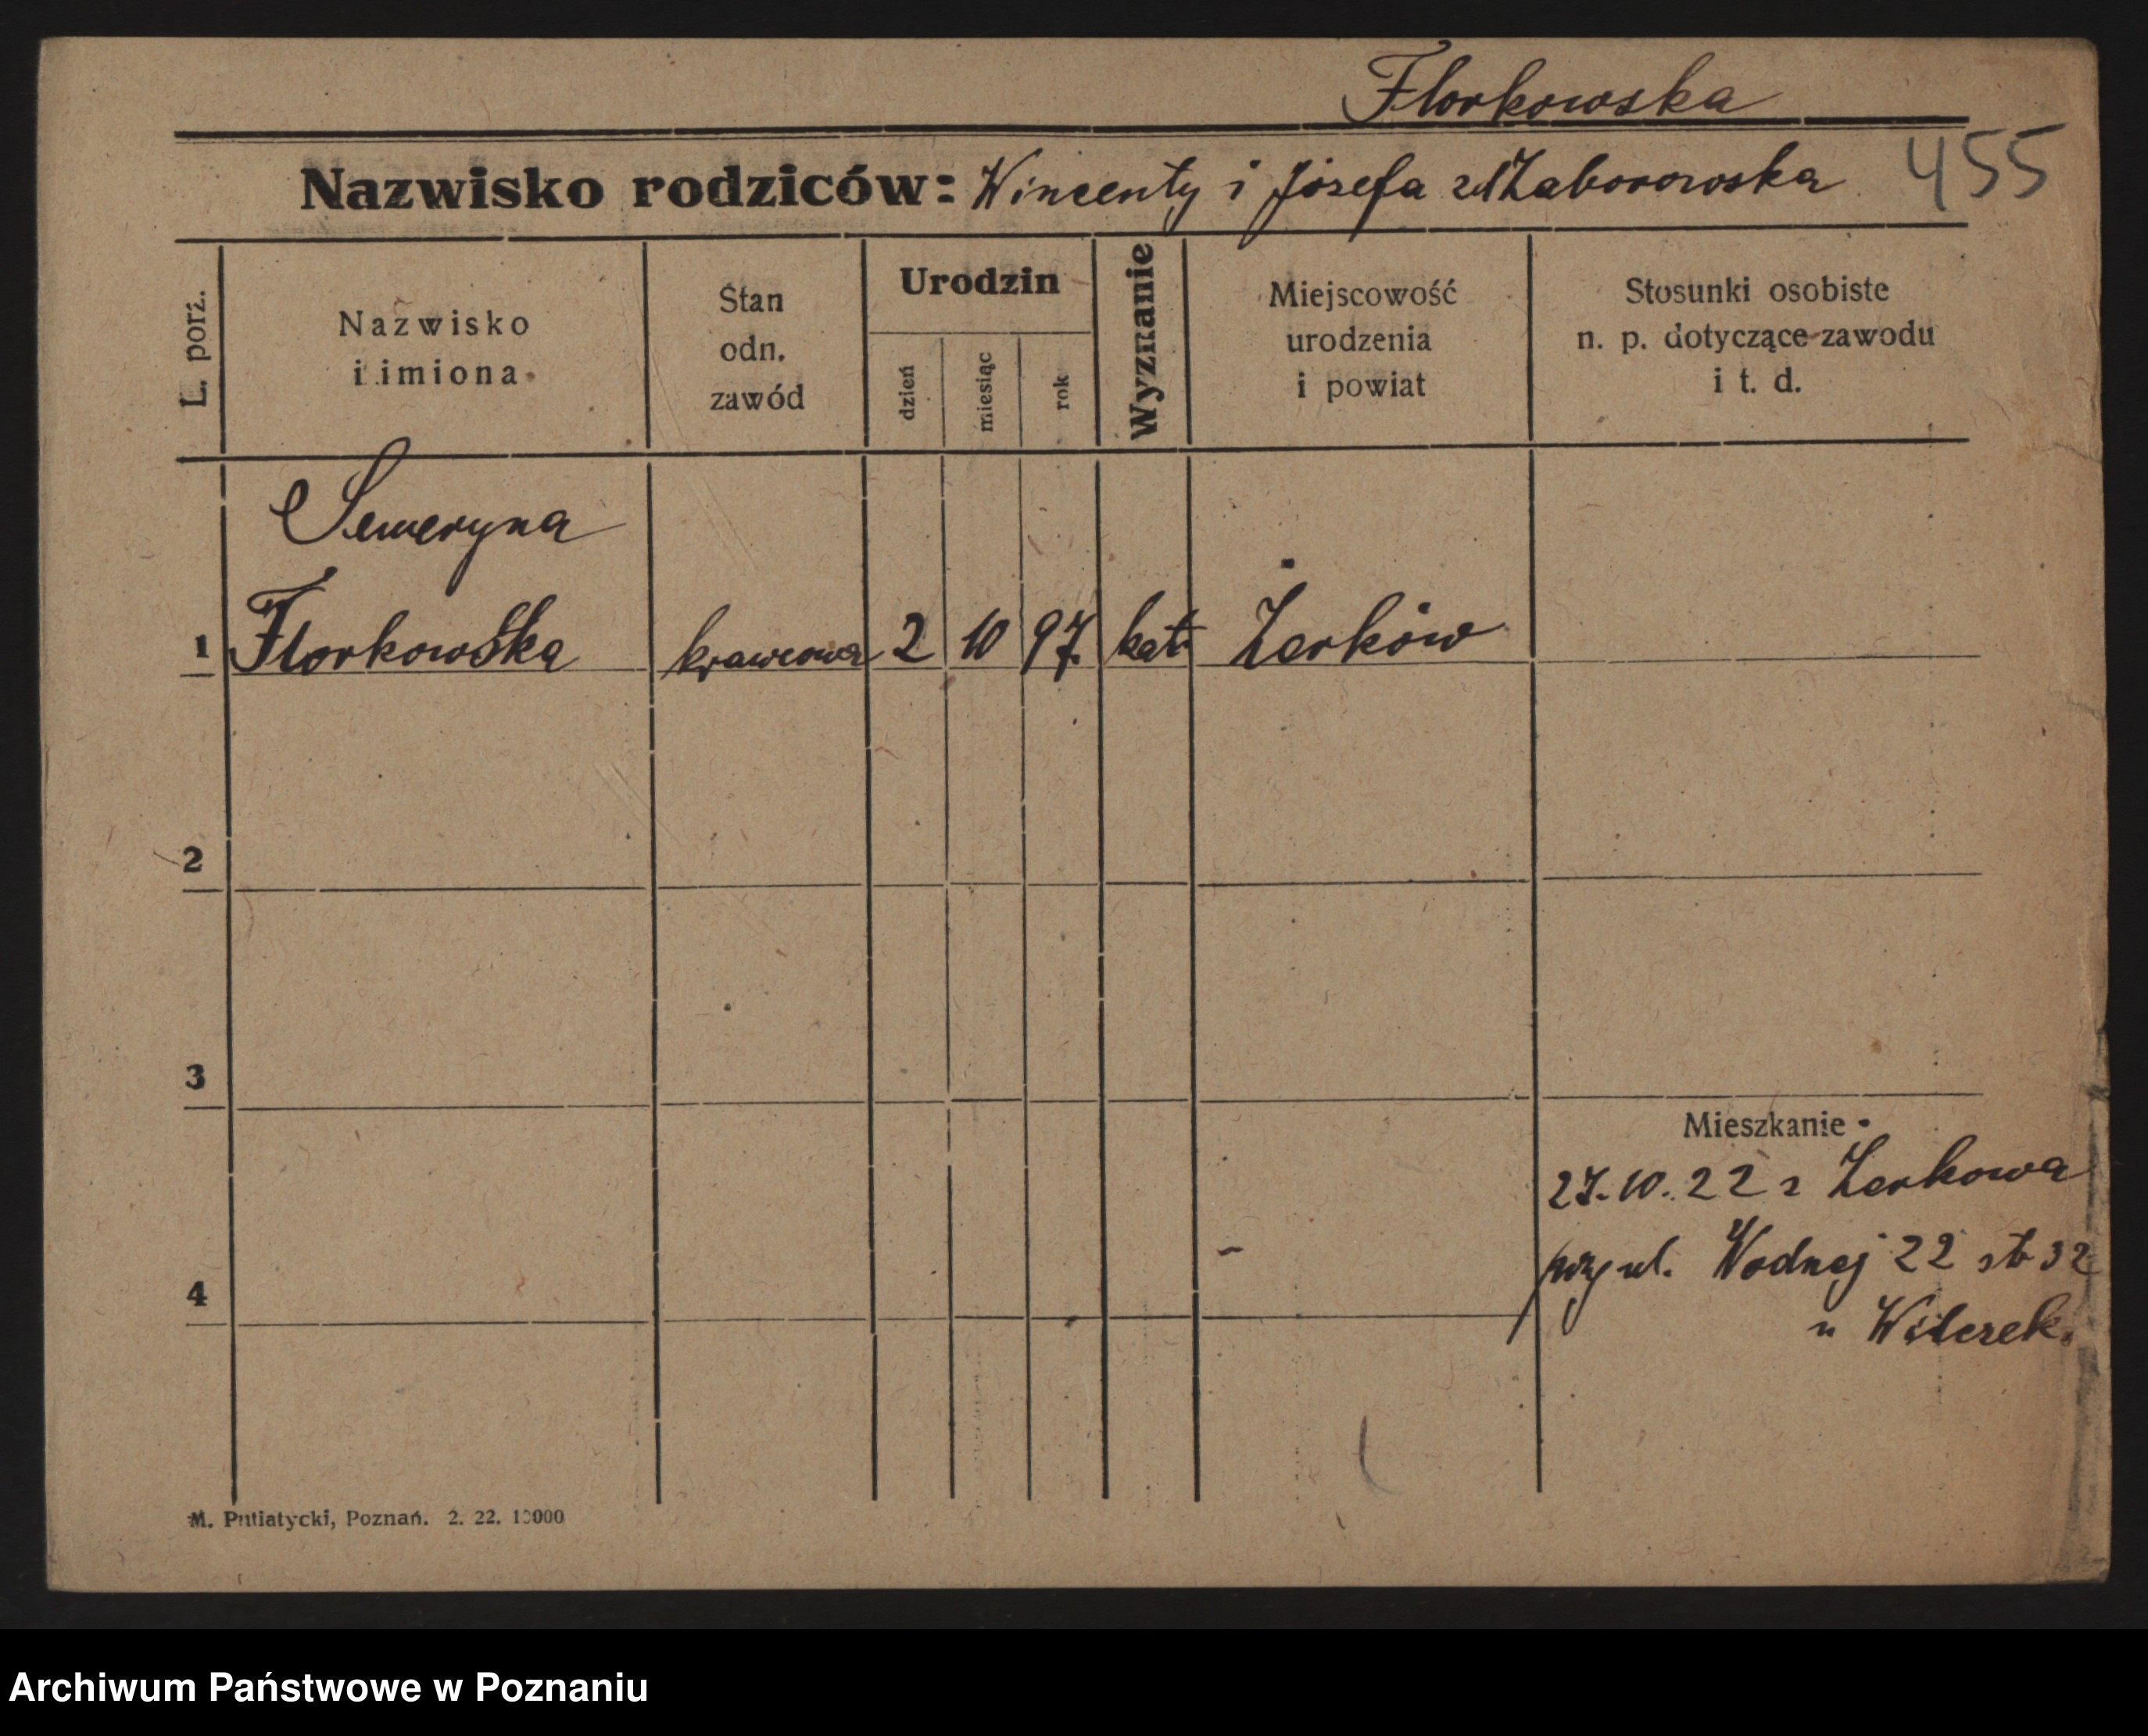 Florkowska
Nazwisko rodziców: Wincenty i Józefa Zaborowska 455
L. porz.
Nazwisko
i imiona
Stan
odn.
zawód
Urodzin
dzień
miesiąc
rok
Wyznanie
Miejscowość
urodzenia
i powiat
Stosunki osobiste
n. p. dotyczące zawodu
i t. d.
Seweryna
1 Florkowska krawcowa 2 10 97. kat. Żerków
2
3
Mieszkanie
27.10.22 z Zerkowa
przy ul. Wodnej 22 st 32
4
u
M. Putiatycki, Poznań. 2. 22. 10000
Archiwum Państwowe w Poznaniu